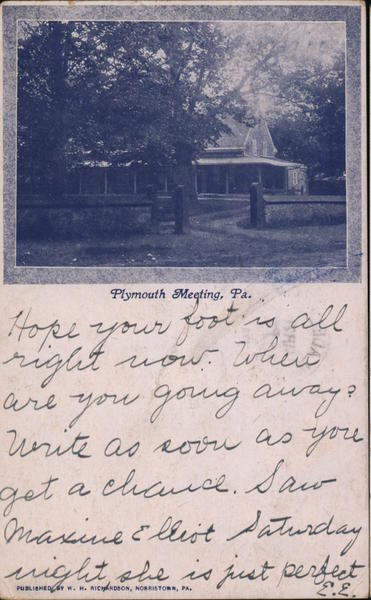 Plymouth Meeting, Pa.
Hope your foot is all
right now. When
are you going away?
Write as soon as you
get a chance. Saw
Maxine Elliot Saturday
night she is just perfect
E.E.
PUBLISHED BY W. H. RICHARDSON, NORRISTOWN, PA.